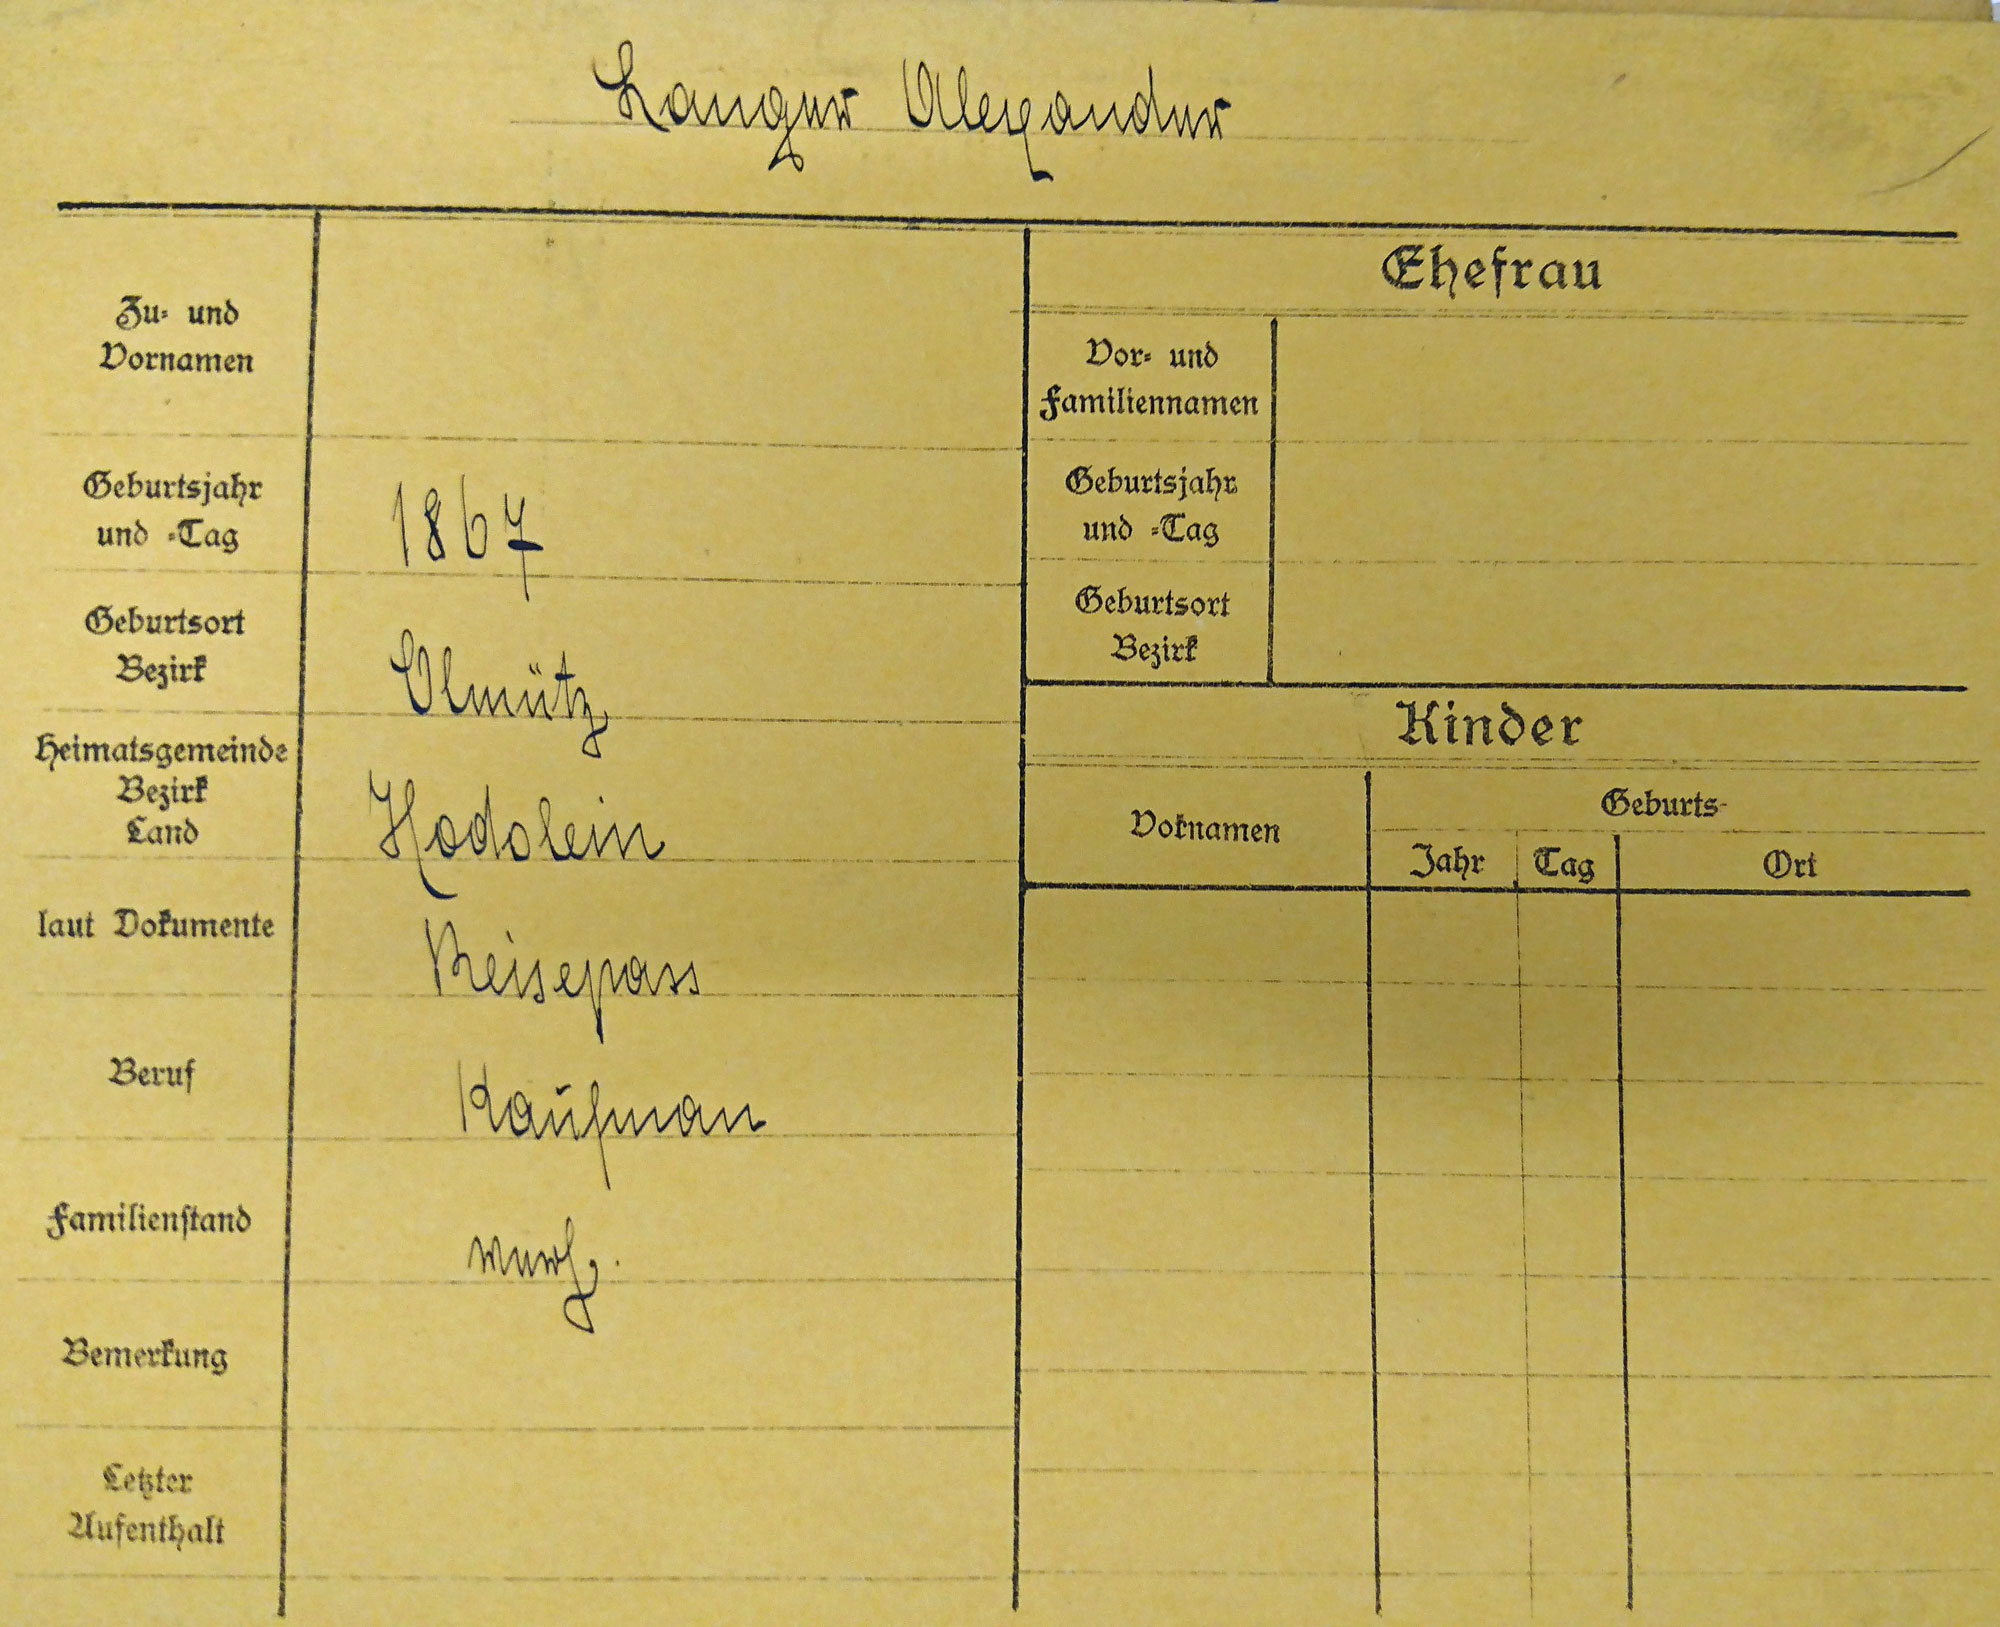 Langer Alexander
Zu- und
Vornamen
Geburtsjahr
und -Tag
1867
Geburtsort
Bezirk
Olmütz
Heimatsgemeinde
Bezirk
Land
Hodolein
laut Dokumente
Reisepass
Beruf
Kaufman
Familienstand
Bemerkung
Letzter
Aufenthalt
Ehefrau
Vor- und
Familiennamen
Geburtsjahr
und -Tag
Geburtsort
Bezirk
Kinder
Vornamen
Geburts-
Jahr
Tag
Ort